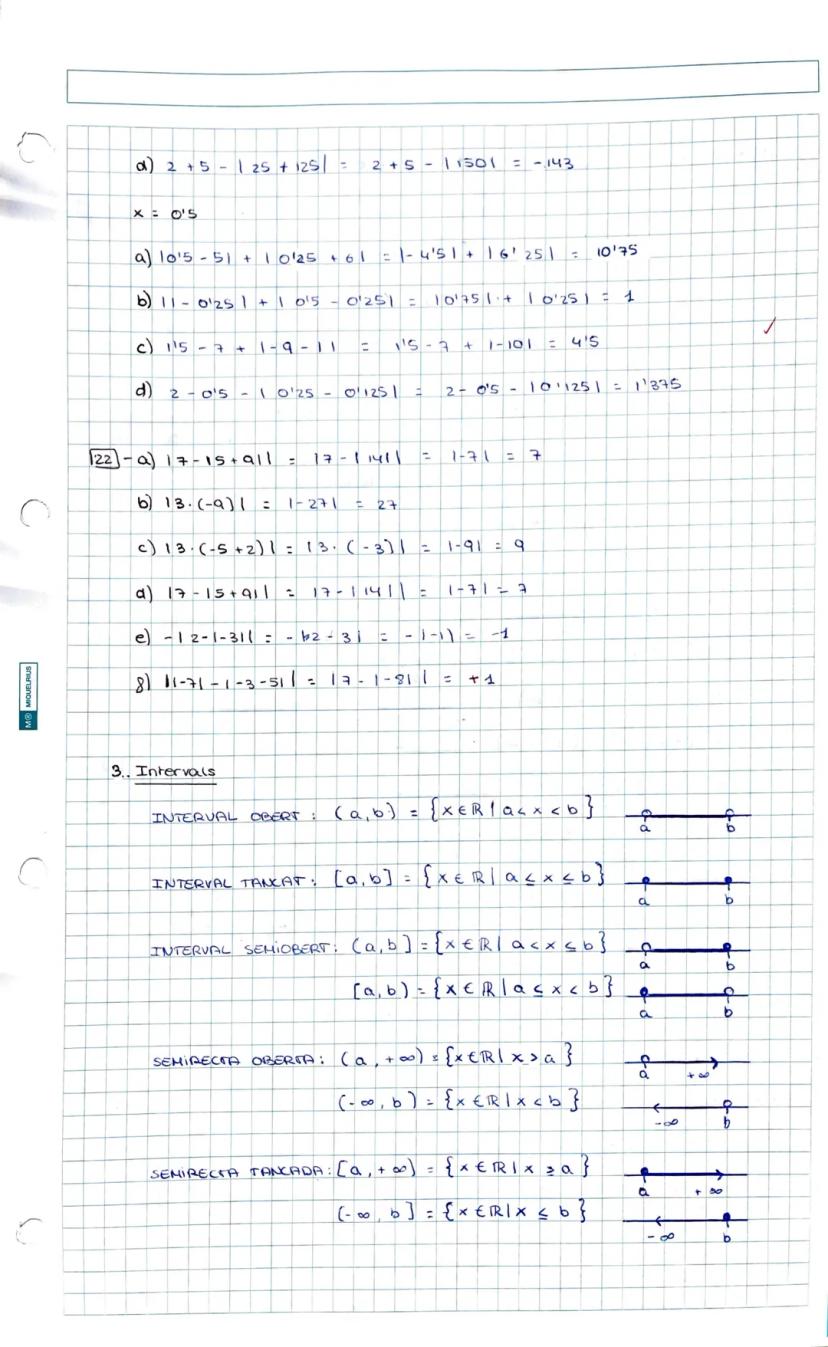 d) 2 + 5 - | 25 + 125 | = 2 + 5 - | 150 | = -143
x = 0'5
a) | 0'5 - 5 | + | 0'25 + 6 | = | - 4'5 | + | 6'25 | = 10'75
b) | 1 - 0'25 | + | 0'5 - 0'25 | = | 0'75 | + | 0'25 | = 1
c) 1'5 - 7 + | - 9 - 1 | = 1'5 - 7 + | -10 | = 4'5
d) 2 - 0'5 - | 0'25 - 0'125 | = 2 - 0'5 - | 0'125 | = 1'375
22 - a) | 7 - | 5 + 9 | | = | 7 - | 14 | | = | -7 | = 7
b) | 3 · (-9) | = | -27 | = 27
c) | 3 · (-5 + 2) | = | 3 · (-3) | = | -9 | = 9
d) | 7 - | 5 + 9 | | = | 7 - | 14 | | = | -7 | = 7
e) - | 2 - | -3 | | = - | 2 - 3 | = - | -1 | = -1
f) | | -7 | - | -3 - 5 | | = | 7 - | -8 | | = +1
M® MIQUELRIUS
3.. Intervals
INTERVAL OBERT : (a,b) = {x ∈ ℝ | a < x < b}
a b
INTERVAL TANCAT : [a,b] = {x ∈ ℝ | a ≤ x ≤ b}
a b
INTERVAL SEMIOBERT : (a,b] = {x ∈ ℝ | a < x ≤ b}
a b
[a,b) = {x ∈ ℝ | a ≤ x < b}
a b
SEMIRECTA OBERTA : (a, +∞) = {x ∈ ℝ | x > a}
a +∞
(-∞, b) = {x ∈ ℝ | x < b}
-∞ b
SEMIRECTA TANCADA : [a, +∞) = {x ∈ ℝ | x ≥ a}
a +∞
(-∞, b] = {x ∈ ℝ | x ≤ b}
-∞ b